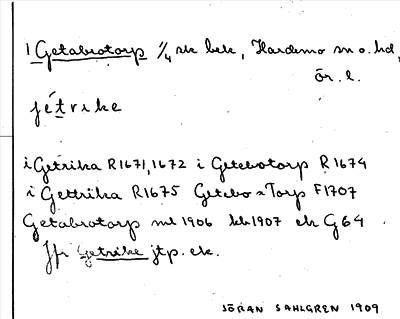 1 Getabrotorp 1/4 sk bek, Hardemo sn o. hd,
ör. l.
jétrike
i Getrika R1671, 1672 i Getebotorp R1674
i Gettrika R1675 Getebo=Torp F1707
Getabrotorp ml 1906 kb 1907 ek G64
Jfr Getrike jtp. ek.
JÖRAN SAHLGREN 1909